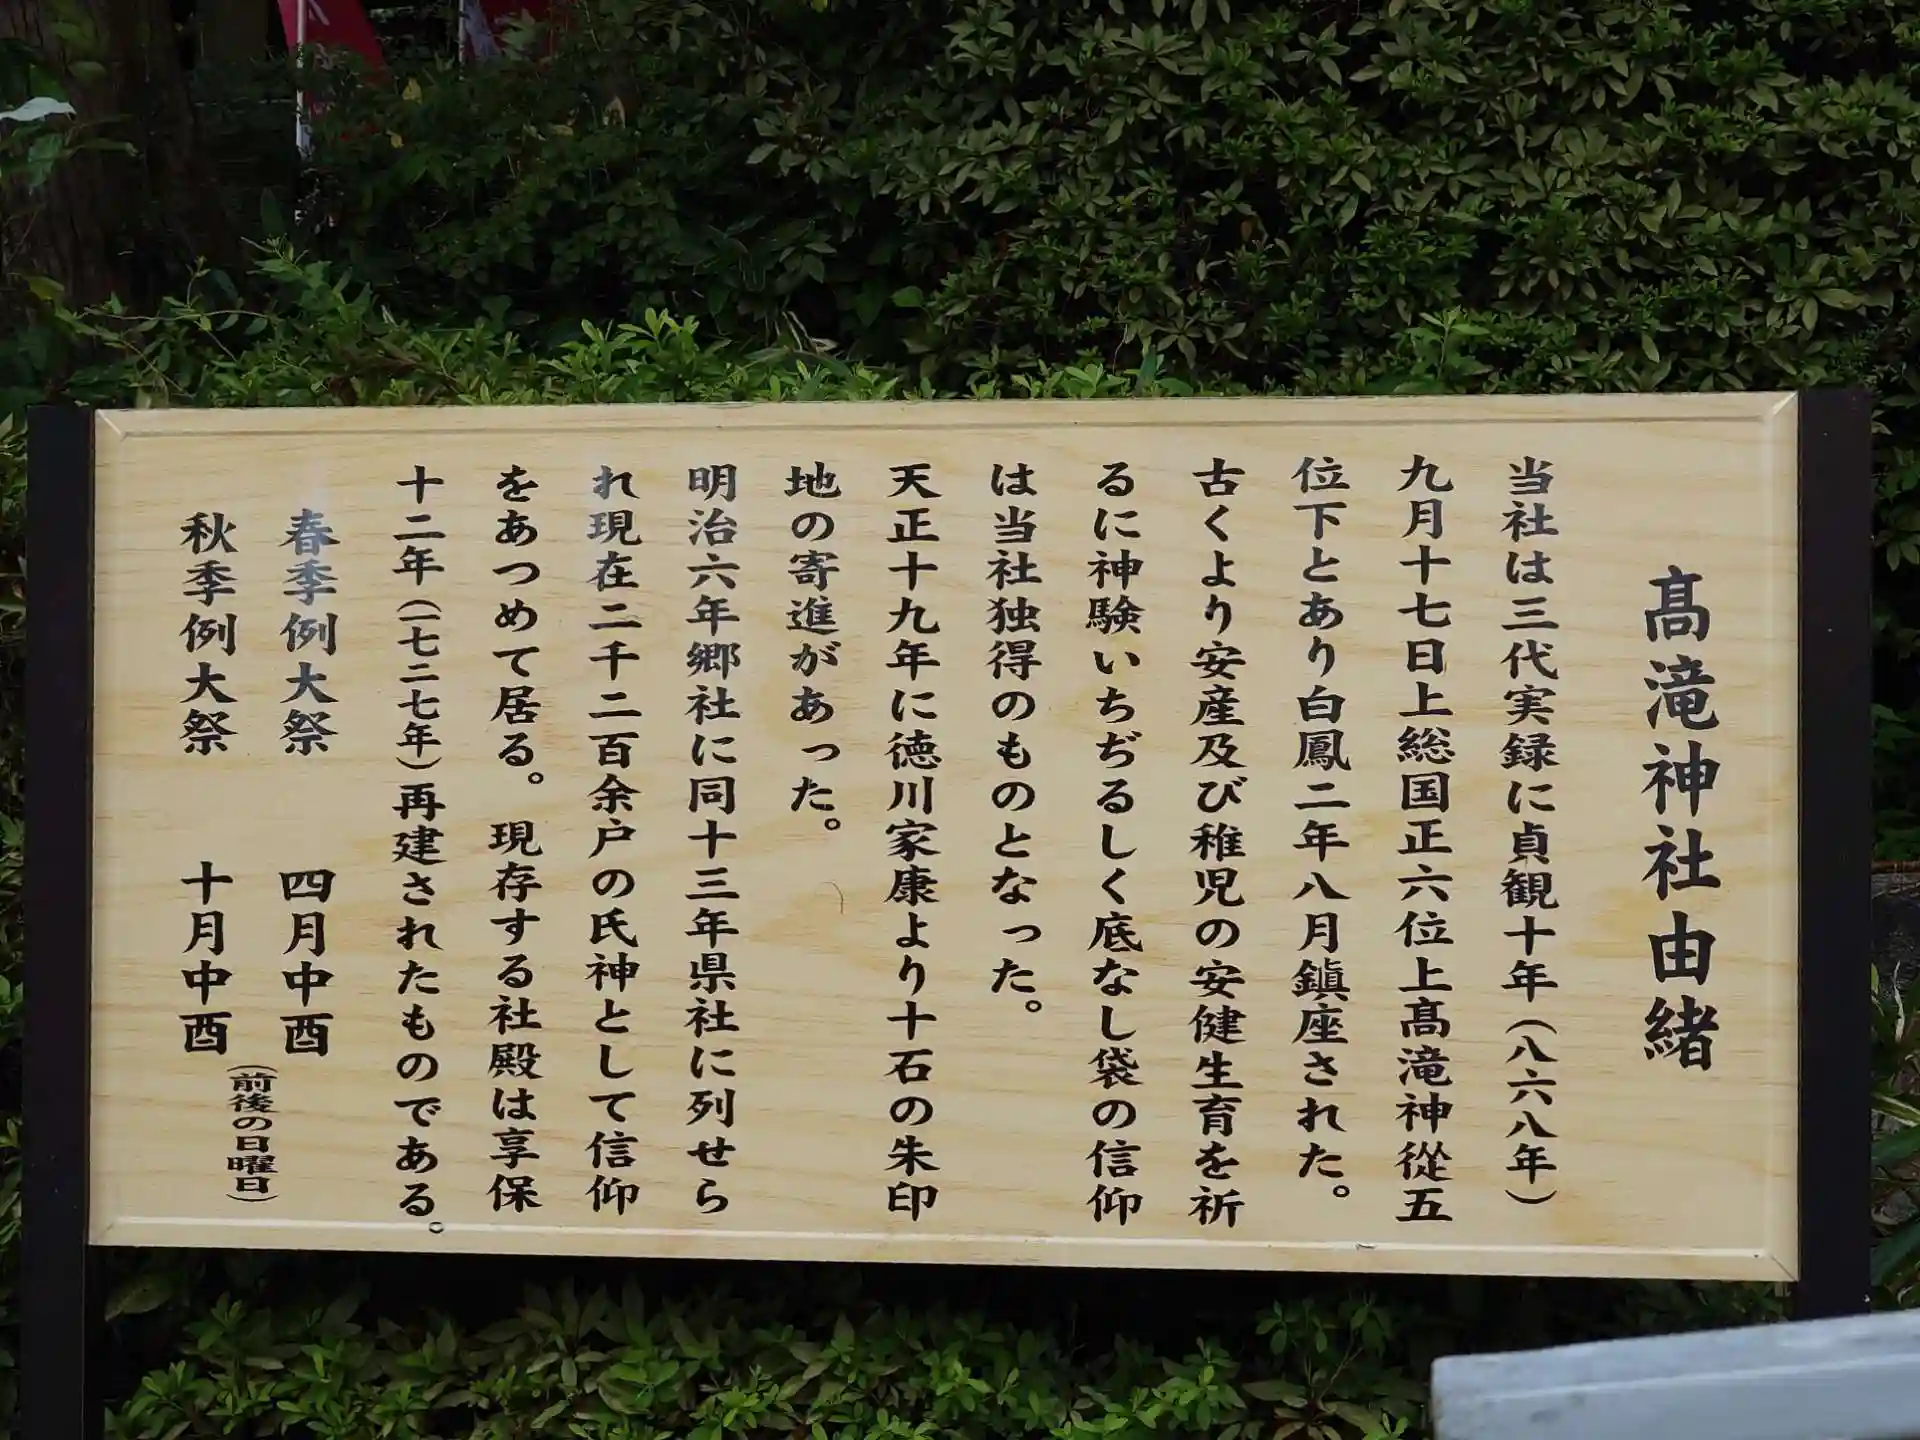 髙滝神社由緒
当社は三代実録に貞観十年（八六八年）
九月十七日上総国正六位上髙滝神從五
位下とあり白鳳二年八月鎮座された。
古くより安産及び稚児の安健生育を祈
るに神験いちぢるしく底なし袋の信仰
は当社独得のものとなった。
天正十九年に徳川家康より十石の朱印
地の寄進があった。
明治六年郷社に同十三年県社に列せら
れ現在二千二百余戸の氏神として信仰
をあつめて居る。現存する社殿は享保
十二年（一七二七年）再建されたものである。
春季例大祭　四月中酉
秋季例大祭　十月中酉
（前後の日曜日）